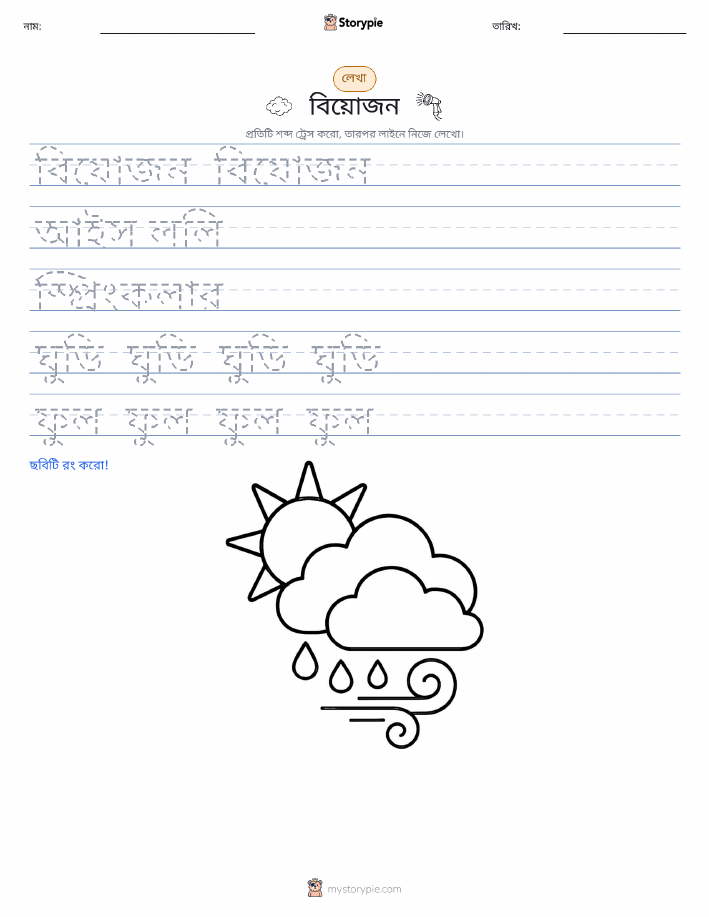 নাম:
Storypie
তারিখ:
লেখা
বিয়োজন
প্রতিটি শব্দ ট্রেস করো, তারপর লাইনে নিজে লেখো।
বিয়োজন বিয়োজন
আইস ললি
স্প্রিংকলার
ঘুড়ি ঘুড়ি ঘুড়ি ঘুড়ি
ফুল ফুল ফুল ফুল
ছবিটি রং করো!
mystorypie.com